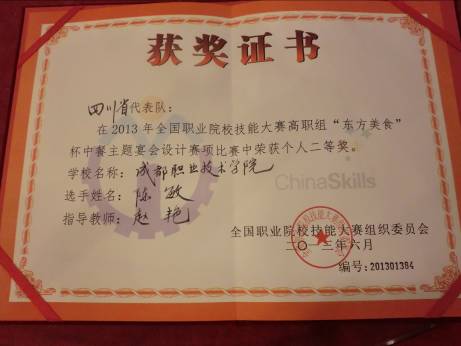 获奖证书
四川省代表队：
在2013年全国职业院校技能大赛高职组“东方美食”
杯中餐主题宴会设计赛项比赛中荣获个人二等奖。
学校名称：成都职业技术学院
ChinaSkills
选手姓名：陈敏
指导教师：赵艳
全国职业院校技能大赛组织委员会
二〇一三年六月
编号：201301384